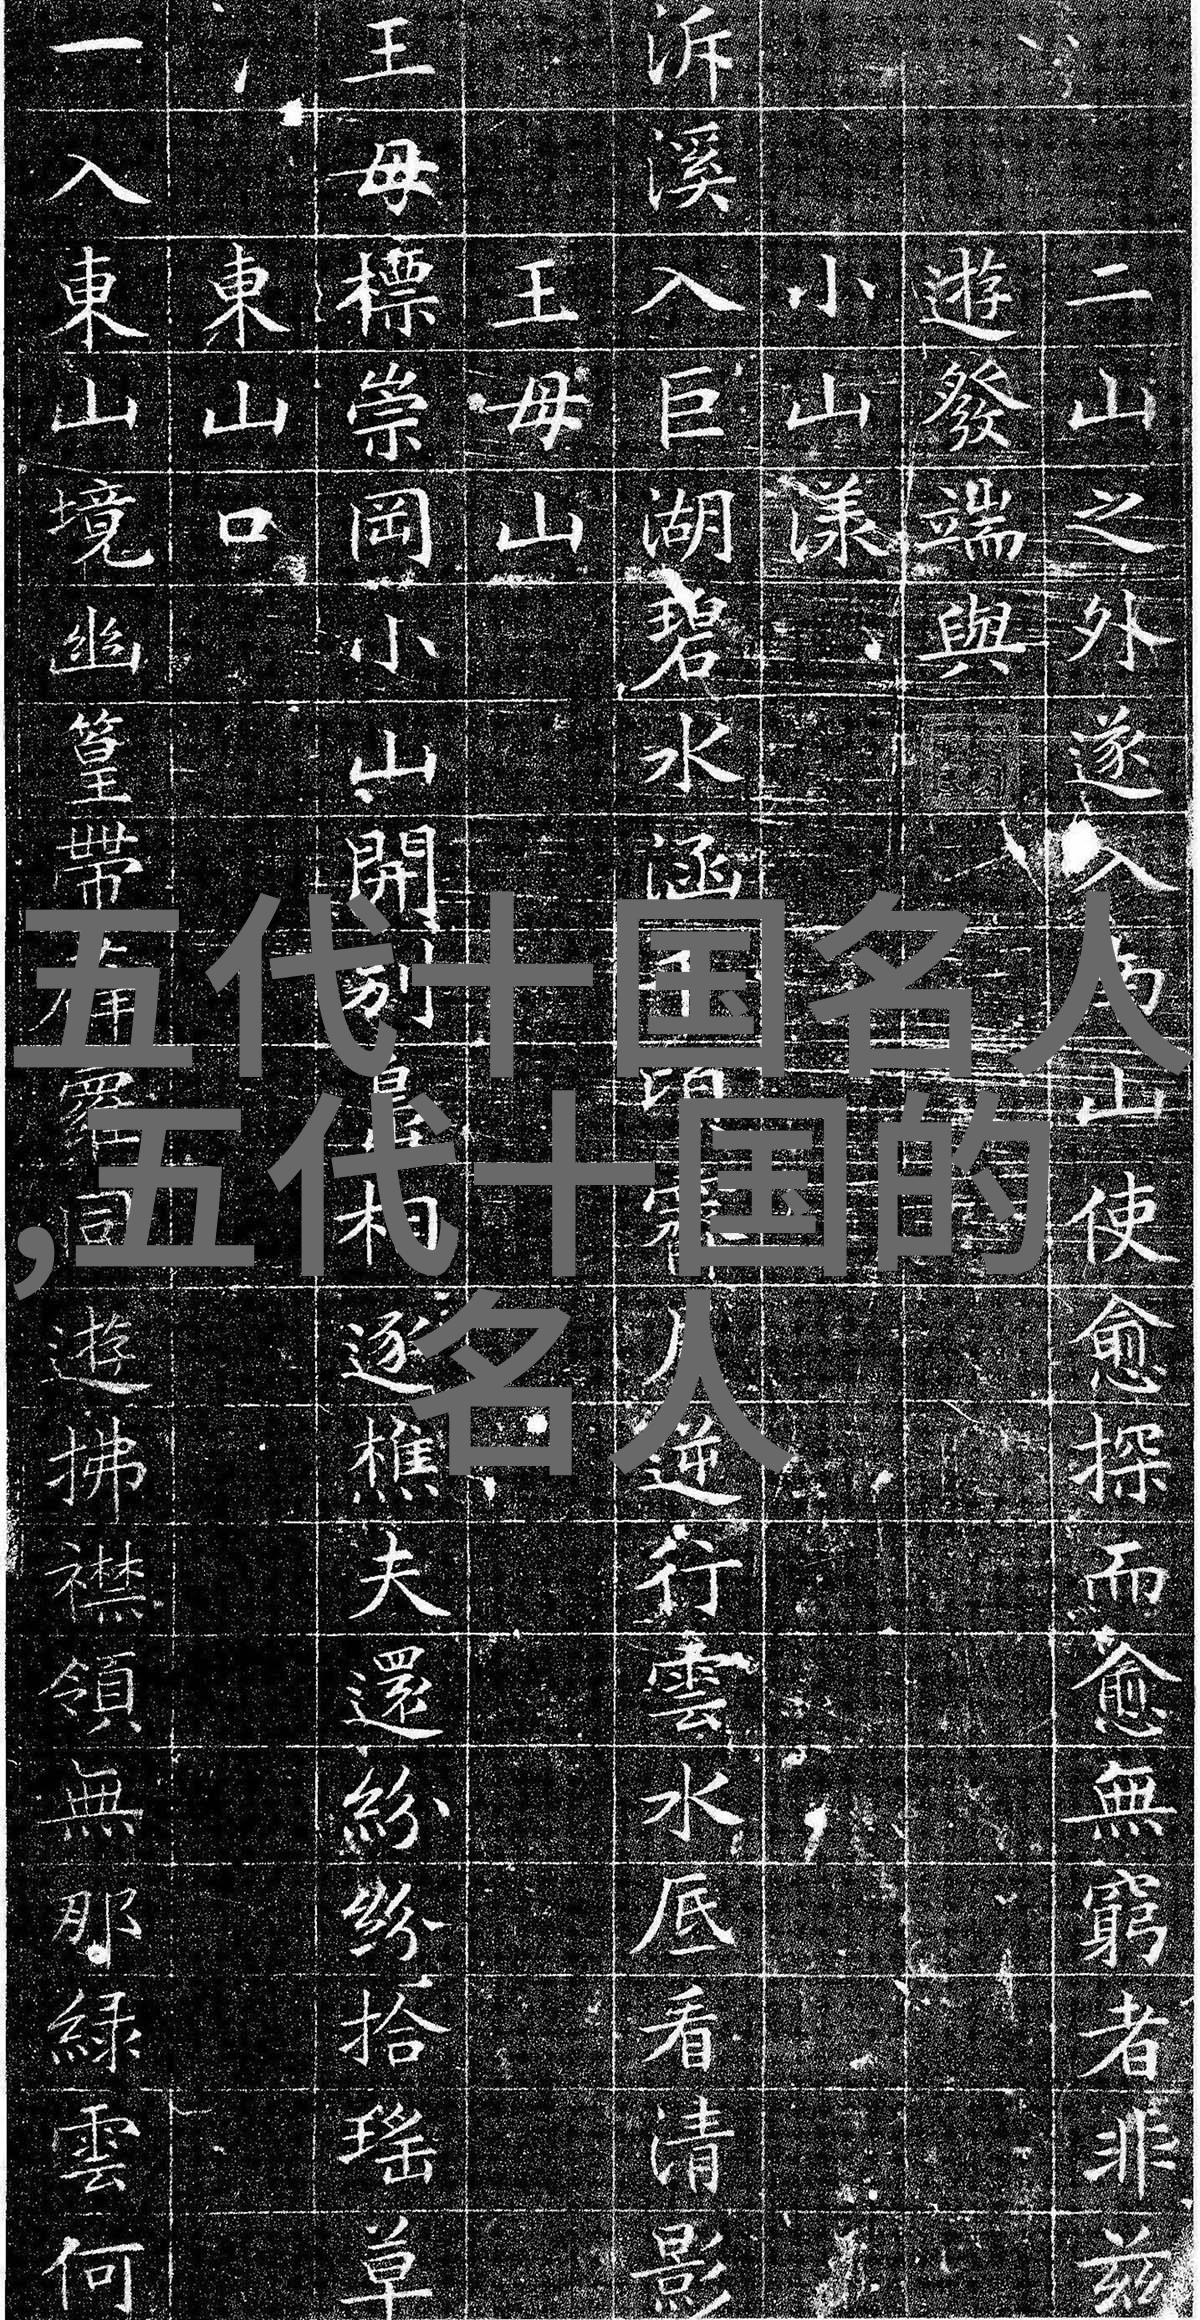 二山之外遂入南山使愈探而愈無窮者非茲
遊發端與
小山漾
泝溪入巨湖碧水涵 逆行雲水底看清影
王母山
王母標崇岡小山開別 逐樵夫還紛紛拾瑤草
東山口
一入東山境幽篁帶 遊拂襟領無那綠雲何
五代十国名人
,五代十国的
名人